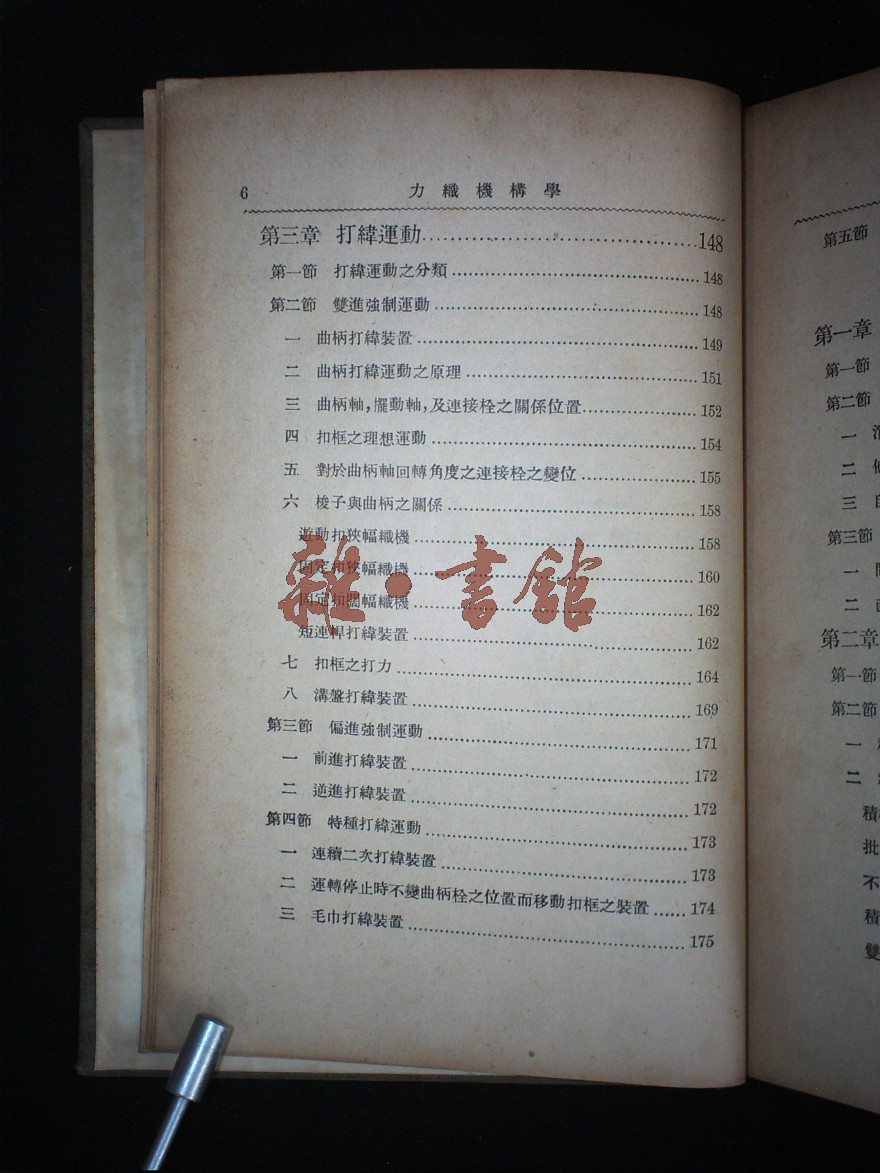 6 力織機構學
第三章 打緯運動 148
第一節 打緯運動之分類 148
第二節 雙進強制運動 148
一 曲柄打緯裝置 149
二 曲柄打緯運動之原理 151
三 曲柄軸,擺動軸,及連接栓之關係位置 152
四 扣框之理想運動 154
五 對於曲柄軸回轉角度之連接栓之變位 155
六 梭子與曲柄之關係 158
遊動扣狹幅織機 158
固定扣狹幅織機 160
固定扣闊幅織機 162
短連桿打緯裝置 162
七 扣框之打力 164
八 溝盤打緯裝置 169
第三節 偏進強制運動 171
一 前進打緯裝置 172
二 逆進打緯裝置 172
第四節 特種打緯運動 173
一 連續二次打緯裝置 173
二 運轉停止時不變曲柄栓之位置而移動扣框之裝置 174
三 毛巾打緯裝置 175
雜·書館
第五節
第一章
第一節
第二節
一
二
三
第三節
一
二
第二章
第一節
第二節
一
二
積
批
不
積
雙